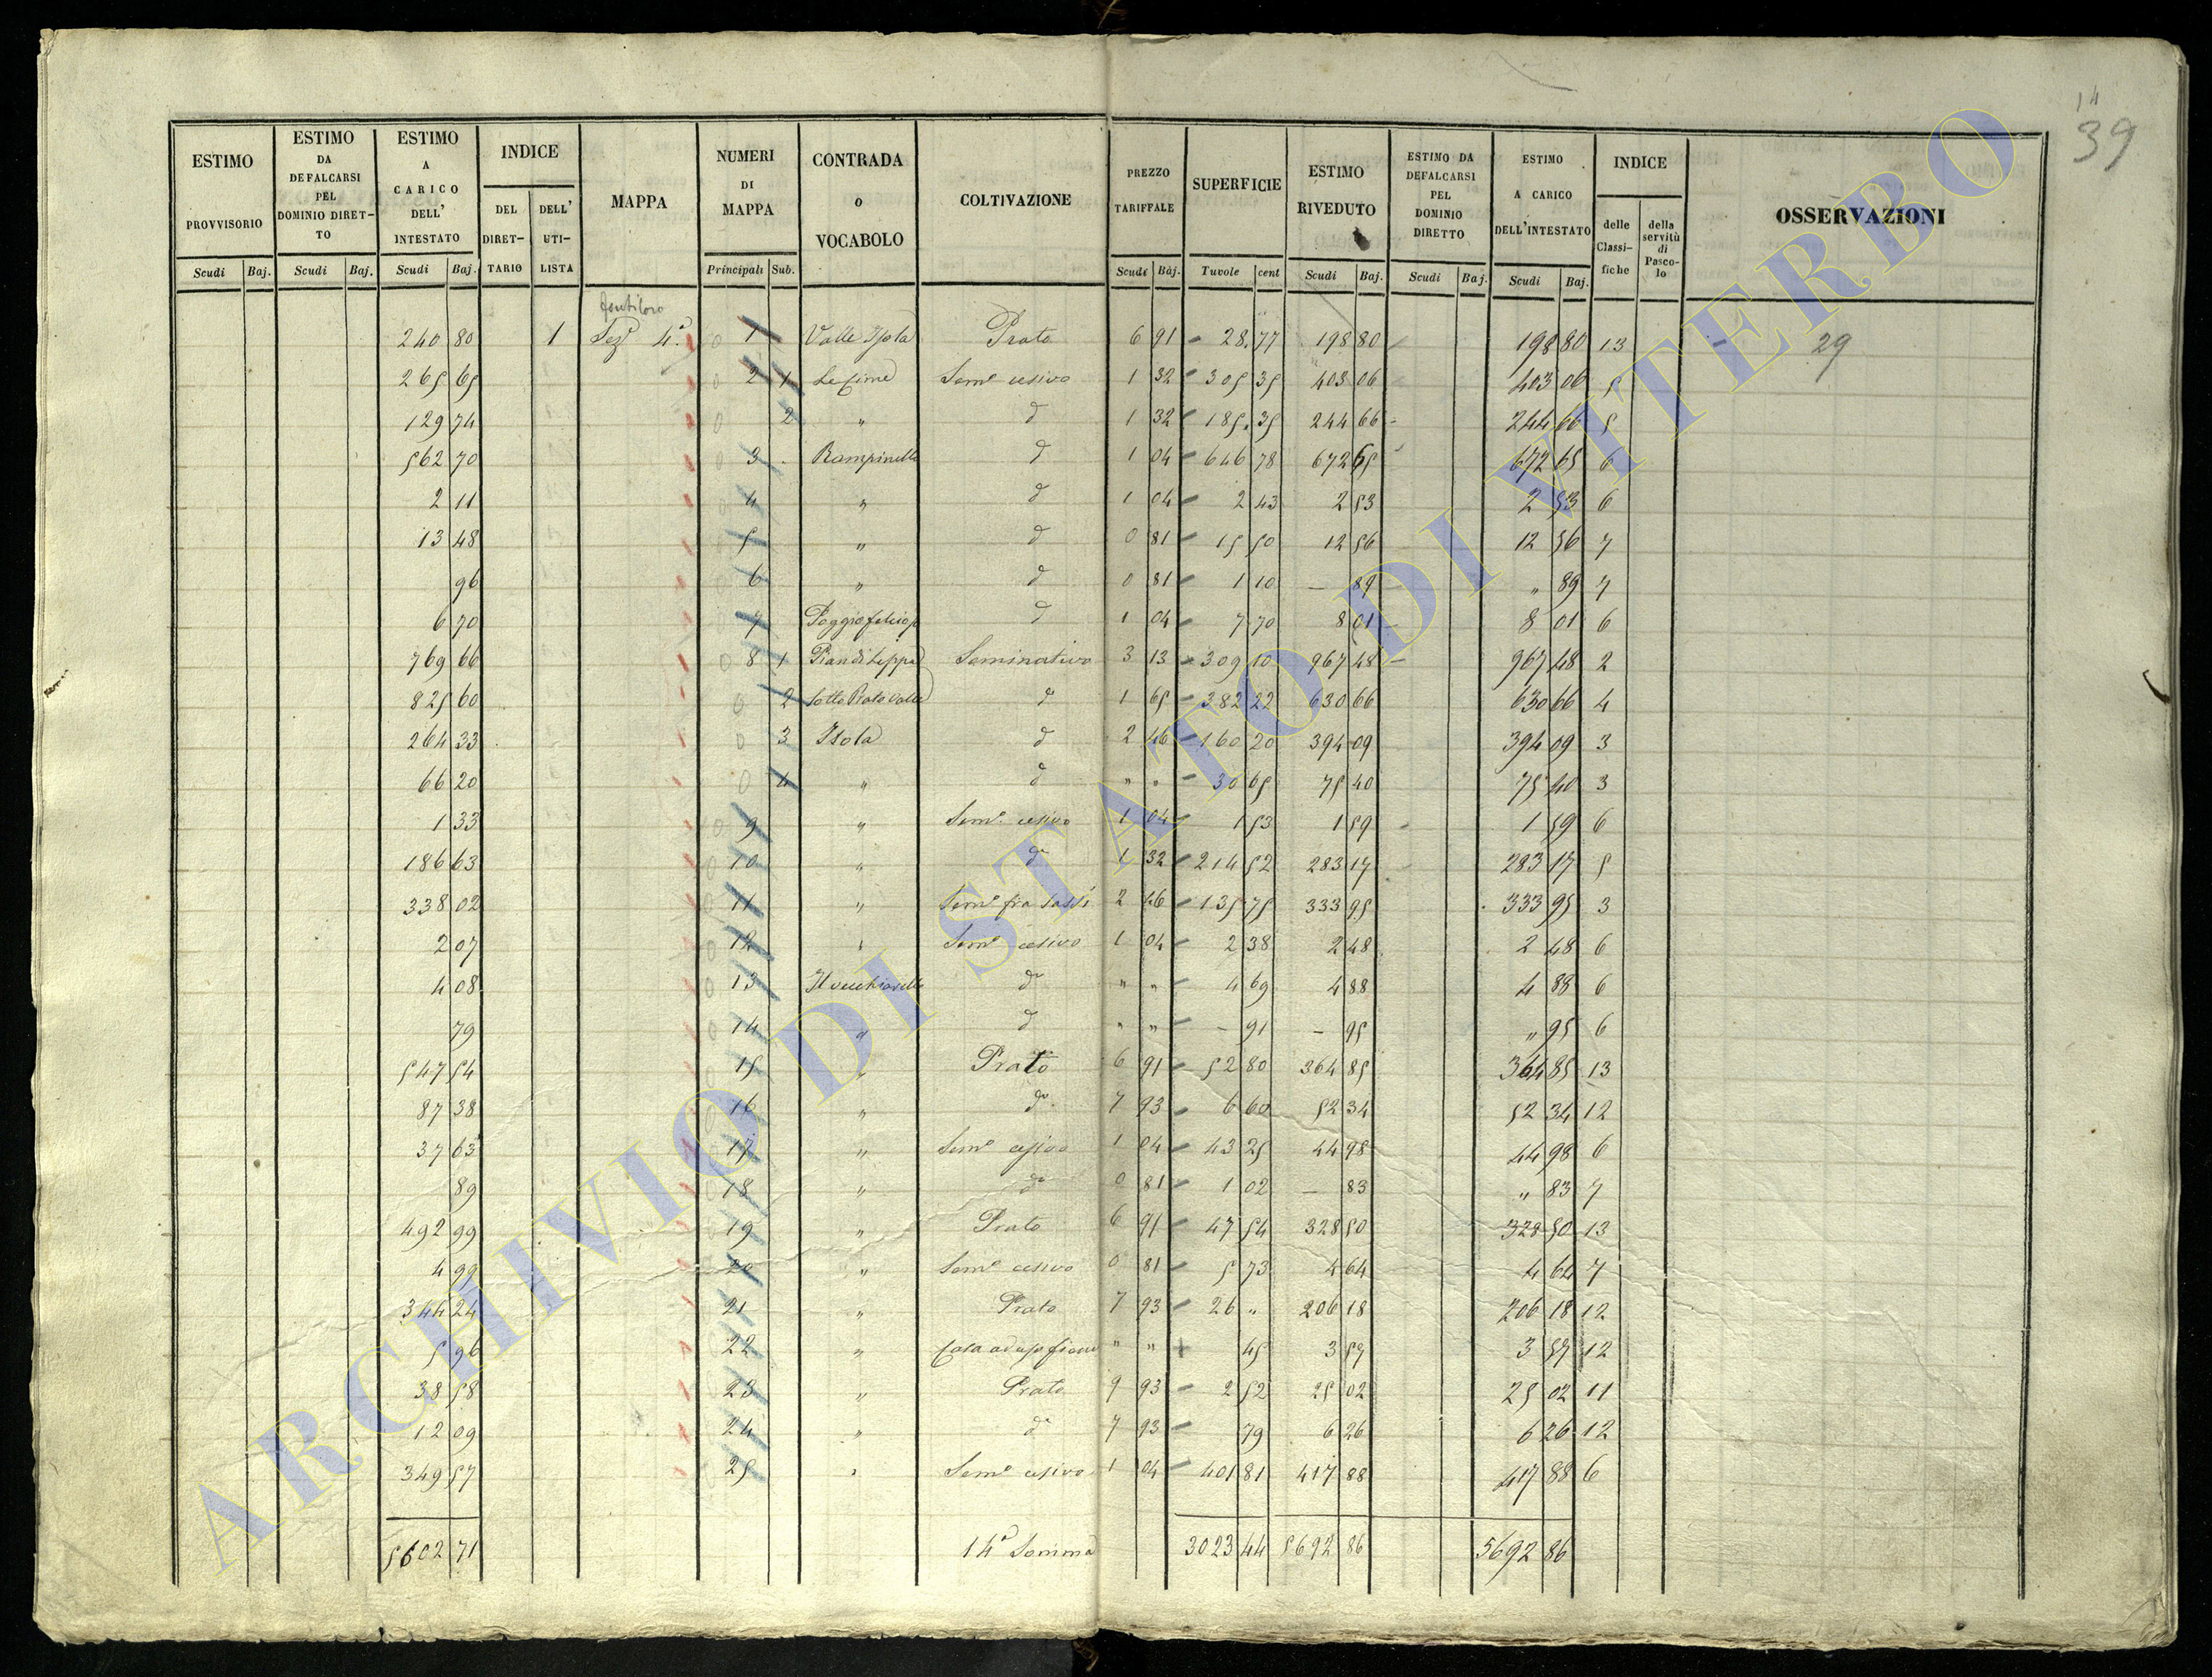 14
39
ESTIMO PROVVISORIO Scudi Baj.
ESTIMO DA DEFALCARSI PEL DOMINIO DIRETTO Scudi Baj.
ESTIMO A CARICO DELL' INTESTATO Scudi Baj.
INDICE DEL DIRETTARIO DELL' UTILISTA
MAPPA
NUMERI DI MAPPA Principali Sub.
CONTRADA o VOCABOLO
COLTIVAZIONE
PREZZO TARIFFALE Scudi Baj.
SUPERFICIE Tavole cent
ESTIMO RIVEDUTO Scudi Baj.
ESTIMO DA DEFALCARSI PEL DOMINIO DIRETTO Scudi Baj.
ESTIMO A CARICO DELL'INTESTATO Scudi Baj.
INDICE delle Classifiche della servitù di Pascolo
OSSERVAZIONI
240 80 1 Sez.e 4.a 1 Valle Isola Prato 6 91 28 77 198 80 198 80 13 29
265 65 2 1 Le Cime Sem.o cesivo 1 32 305 35 403 06 403 06 5
129 74 2 " d 1 32 185 35 244 66 244 66 5
562 70 3 Rampinella d 1 04 646 78 672 65 672 65 6
2 11 4 " d 1 04 2 43 2 53 2 53 6
13 48 5 " d 0 81 15 50 12 56 12 56 7
96 6 " d 0 81 1 10 — 89 " 89 7
6 70 7 d 1 04 7 70 8 01 8 01 6
769 66 8 1 Seminativo 3 13 309 10 967 48 967 48 2
825 60 2 Sotto Prato Valle d 1 65 382 22 630 66 630 66 4
264 33 3 Isola d 2 46 160 20 394 09 394 09 3
66 20 4 " d " " 30 65 75 40 75 40 3
1 33 9 " Sem.o cesivo 1 04 1 53 1 59 1 59 6
186 63 10 " d 1 32 214 52 283 17 283 17 5
338 02 11 " Sem.o fra sassi 2 46 135 75 333 95 333 95 3
2 07 12 " Sem.o cesivo 1 04 2 38 2 48 2 48 6
4 08 13 d " " 4 69 4 88 4 88 6
79 14 " d " " — 91 — 95 " 95 6
547 54 15 " Prato 6 91 52 80 364 85 364 85 13
87 38 16 " d 7 93 6 60 52 34 52 34 12
37 63 17 " Sem.o cesivo 1 04 43 25 44 98 44 98 6
89 18 " d 0 81 1 02 — 83 " 83 7
492 99 19 " Prato 6 91 47 54 328 50 328 50 13
4 99 20 " Sem.o cesivo 0 81 5 73 4 64 4 64 7
344 24 21 " Prato 7 93 26 " 206 18 206 18 12
5 96 22 " " " 45 3 57 3 57 12
38 58 23 " Prato 9 93 2 52 25 02 25 02 11
12 09 24 " d 7 93 79 6 26 6 26 12
349 57 25 " Sem.o cesivo 1 04 401 81 417 88 417 88 6
5602 71 14.a Somma 3023 44 5692 86 5692 86
ARCHIVIO DI STATO DI VITERBO